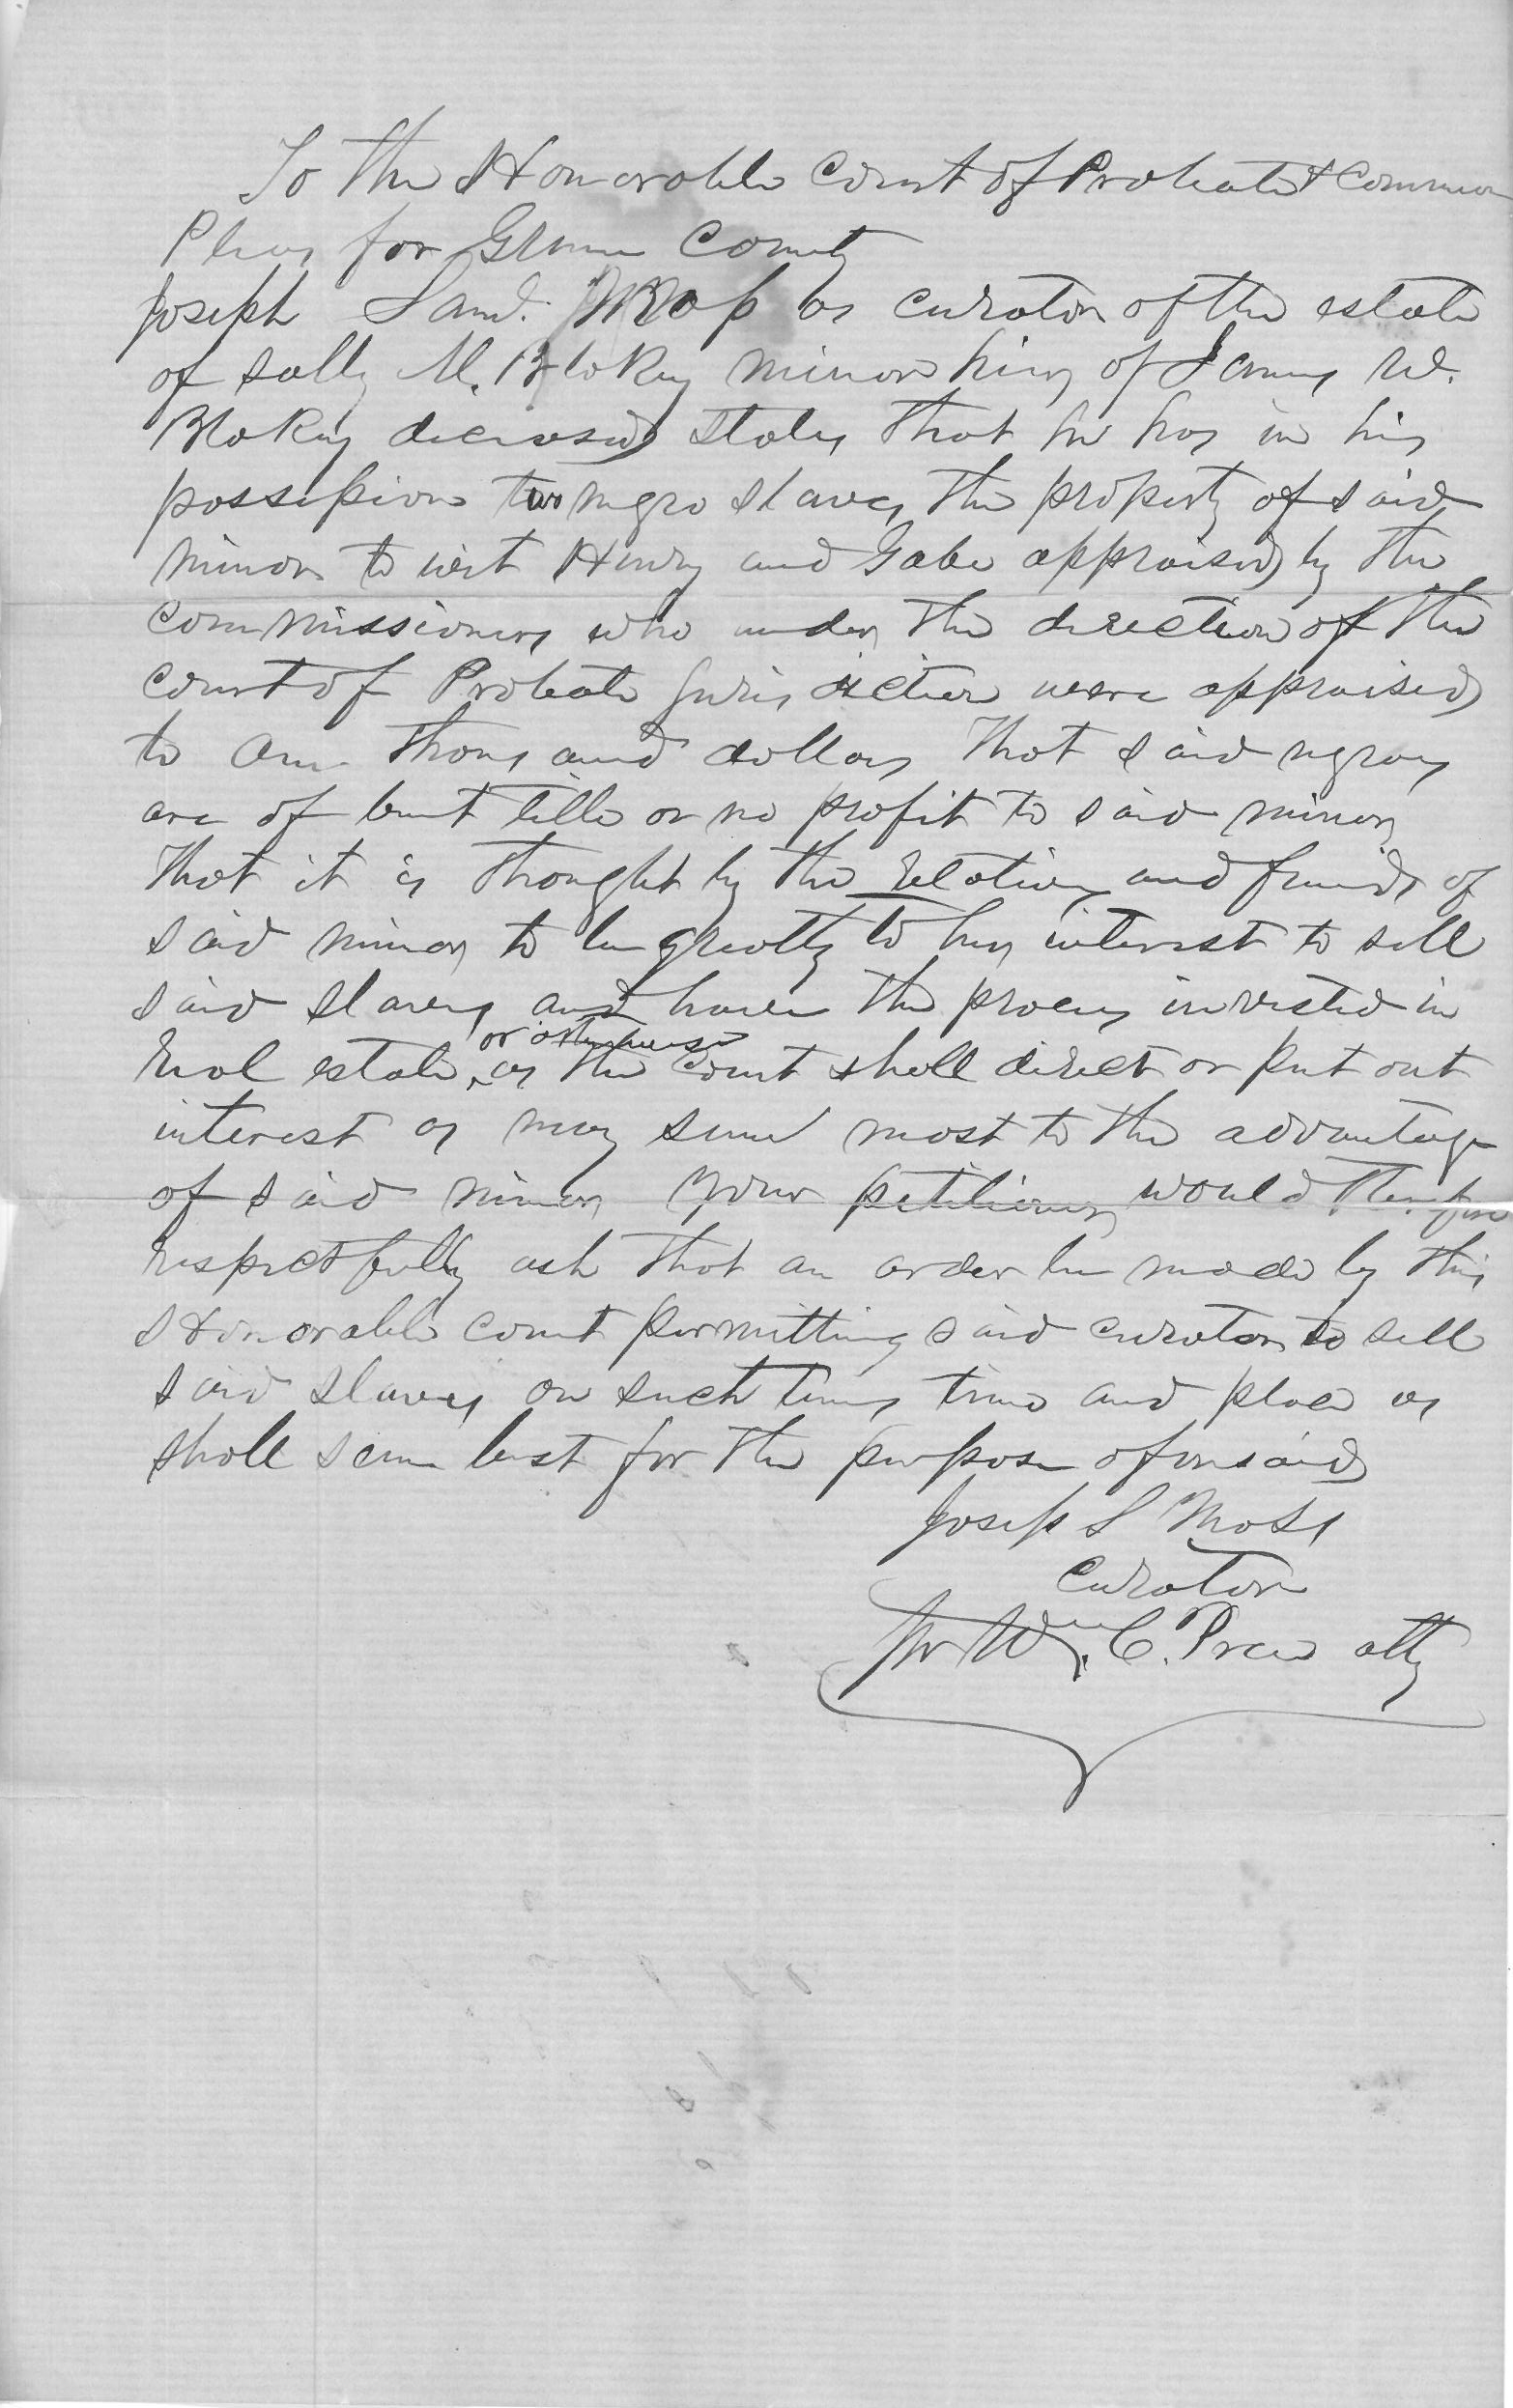 To the Honorable Court of Probate & Common
Pleas for Greene County
Joseph Saml. Moss as curator of the estate
of Sally M. Blakey minor heir of James W.
Blakey deceased states that he has in his
possession two negro slaves the property of said
minor to wit Henry and Gabe appraised by the
commissioners who under the direction of the
court of Probate Jurisdiction were appraised
to One Thousand dollars That said negroes
are of but little or no profit to said minor
That it is thought by the relatives and friends of
said minor to be greatly to her interest to sell
said slaves and have the procees invested in
or otherwise
real estate, as the Court shall direct or put out
interest as may seem most to the advantage
of said minor your petitioner would therefore
respectfully ask that an order be made by this
Honorable court permitting said curator to sell
said slaves on such terms time and place as
shall seem best for the purpose aforesaid
Joseph S Moss
Curator
Wm. C. Price atty